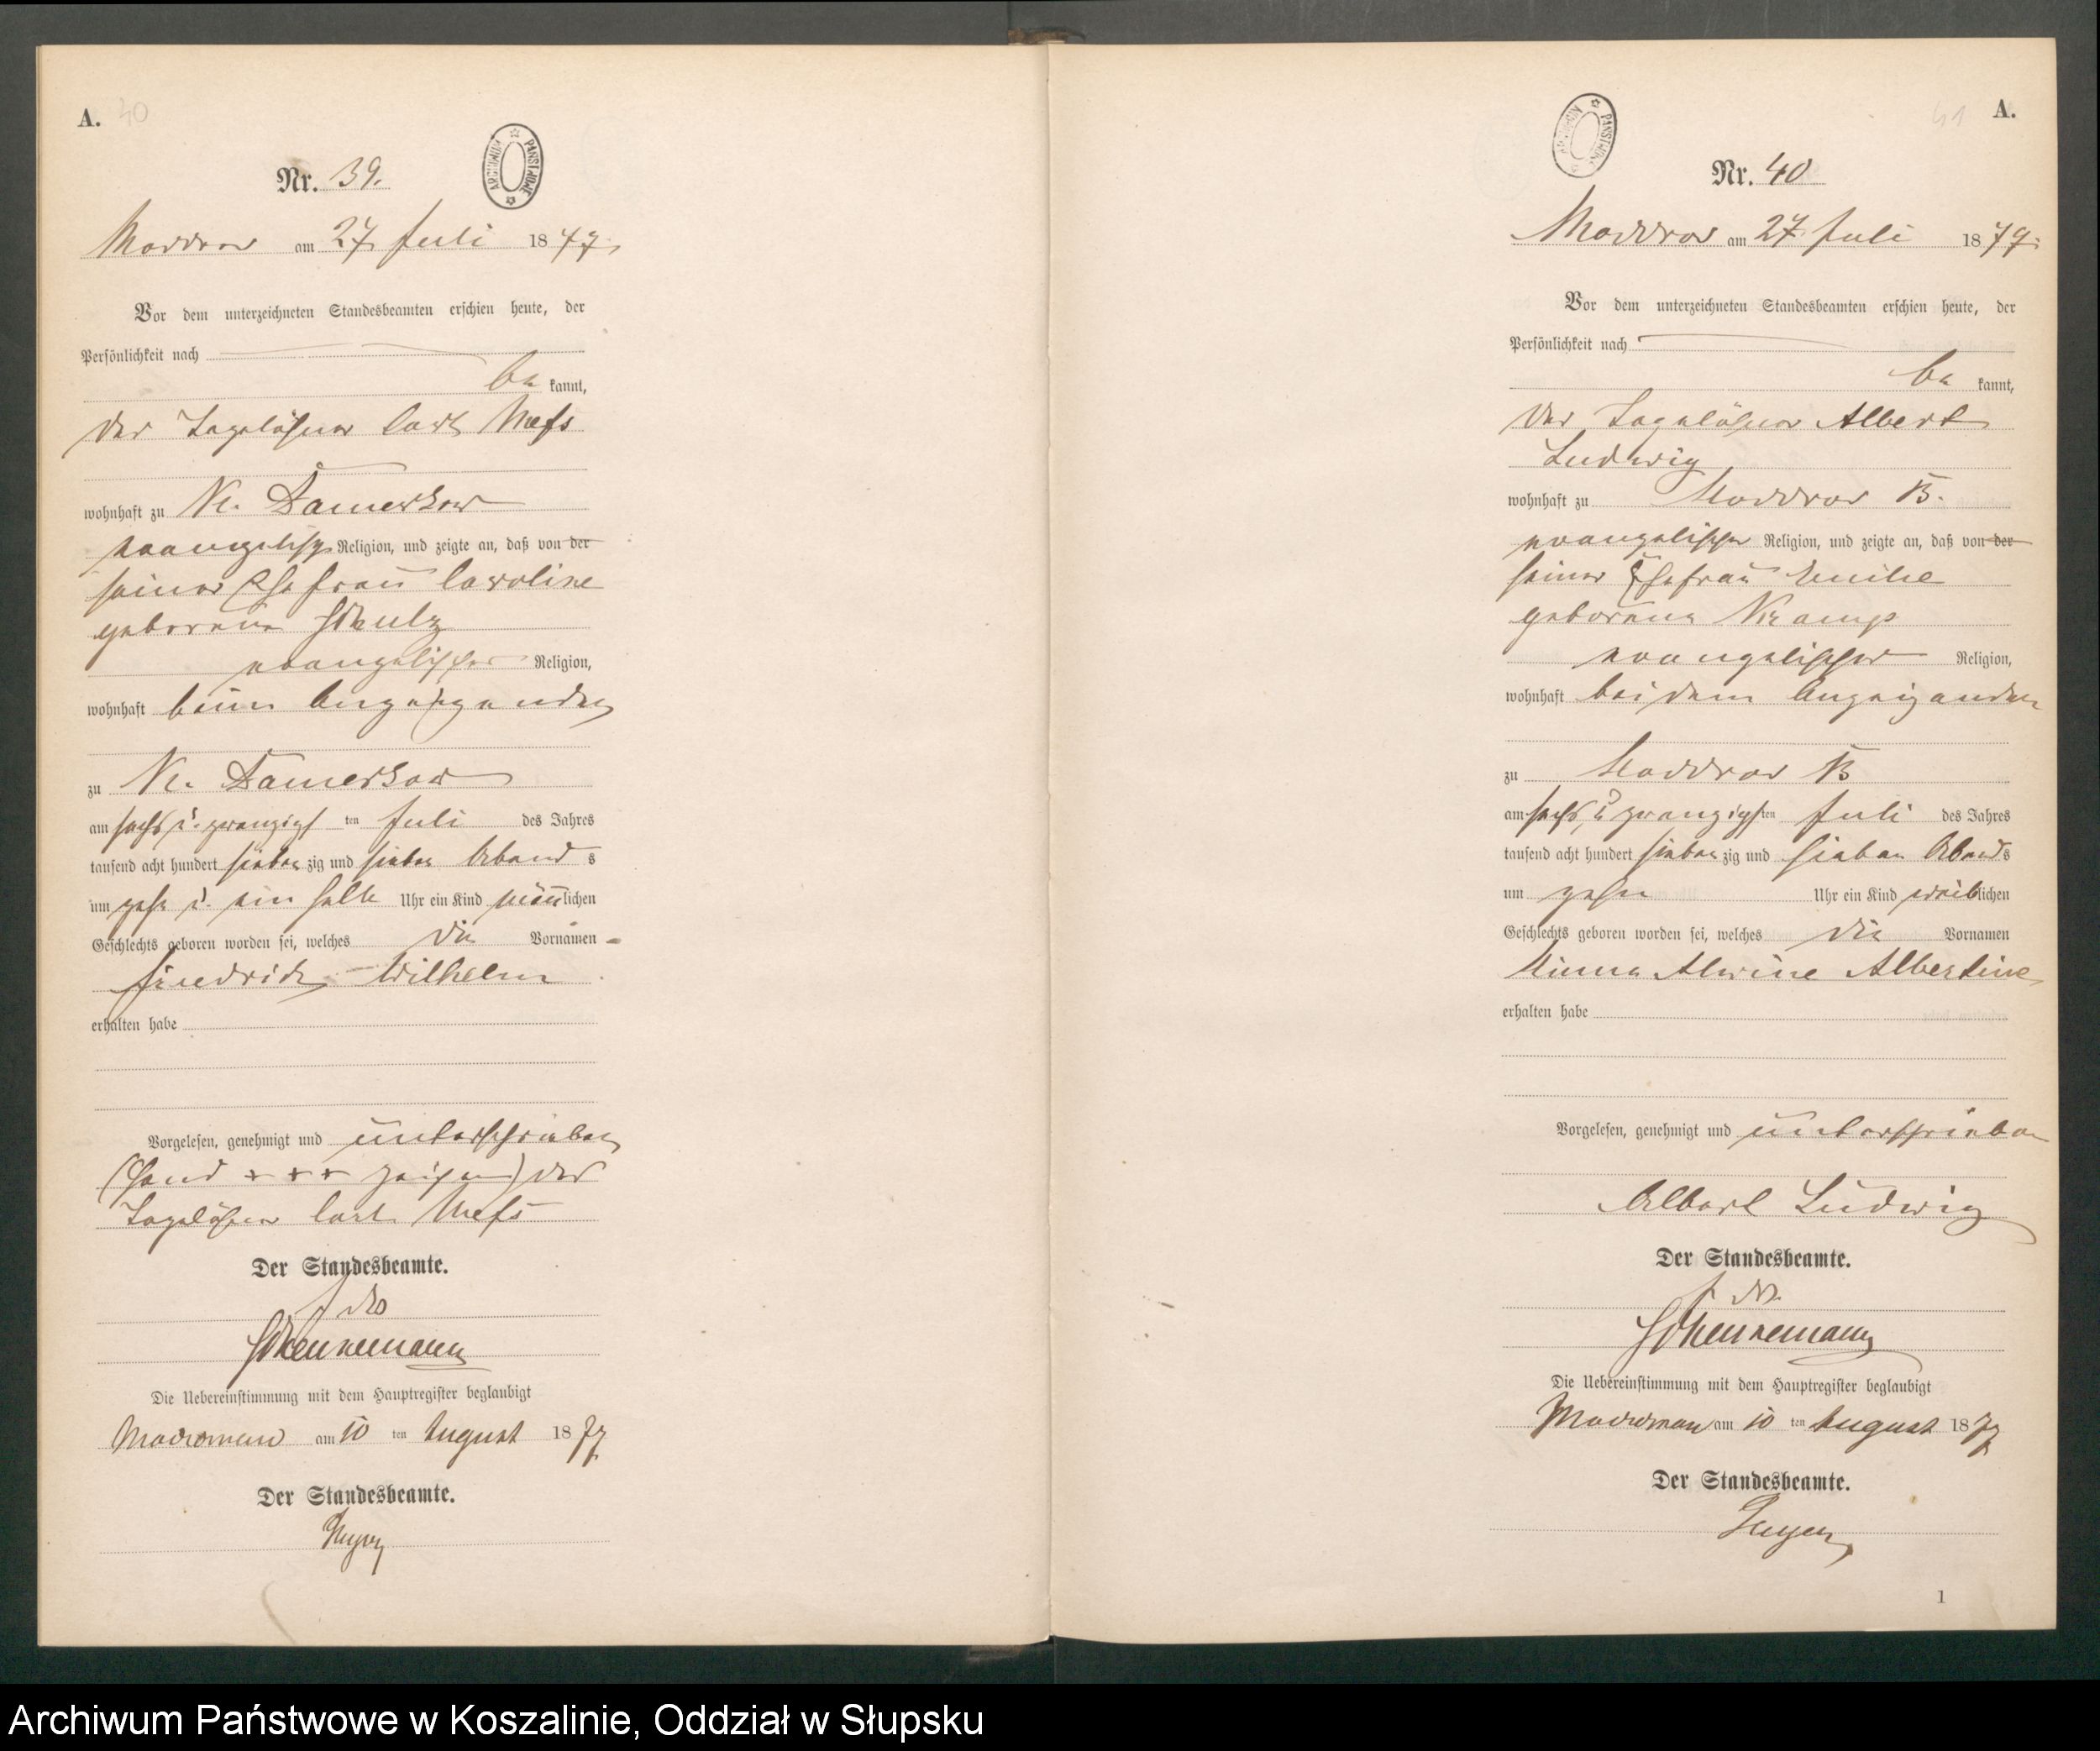 A. 40
ARCHIWUM PAŃSTWOWE
Nr. 39.
Moddrow am 27 Juli 1877.
Vor dem unterzeichneten Standesbeamten erschien heute, der
Persönlichkeit nach
be kannt,
der Tagelöhner Carl
wohnhaft zu Kl. Damerkow
evangelisch Religion, und zeigte an, daß von der
seiner Ehefrau Caroline
geborene Schulz
evangelischer Religion,
wohnhaft beim Anzeigenden
zu Kl. Damerkow
am sechs u. zwanzigs ten Juli des Jahres
tausend acht hundert sieben zig und sieben Abend s
um zehn u. ein halb Uhr ein Kind männlichen
Geschlechts geboren worden sei, welches die Vornamen
Friedrich Wilhelm
erhalten habe
Vorgelesen, genehmigt und unterschrieben
(Hand + + + zeichen) des
Tagelöhner Carl
Der Standesbeamte.
Schennemann
Die Uebereinstimmung mit dem Hauptregister beglaubigt
am 10 ten August 1877
Der Standesbeamte.
41 A.
ARCHIWUM PAŃSTWOWE
Nr. 40
Moddrow am 27. Juli 1877.
Vor dem unterzeichneten Standesbeamten erschien heute, der
Persönlichkeit nach
be kannt,
der Tagelöhner Albert
Ludwig
wohnhaft zu Moddrow B.
evangelischer Religion, und zeigte an, daß von der
seiner Ehefrau Emilie
geborene Kramp
evangelischer Religion,
wohnhaft bei dem Anzeigenden
zu Moddrow B
am sechs u zwanzigsten Juli des Jahres
tausend acht hundert sieben zig und sieben Abends
um zehn Uhr ein Kind weiblichen
Geschlechts geboren worden sei, welches die Vornamen
Minna Alwine Albertine
erhalten habe
Vorgelesen, genehmigt und unterschrieben
Albert Ludwig
Der Standesbeamte.
Schennemann
Die Uebereinstimmung mit dem Hauptregister beglaubigt
am 10 ten August 1877
Der Standesbeamte.
1
Archiwum Państwowe w Koszalinie, Oddział w Słupsku